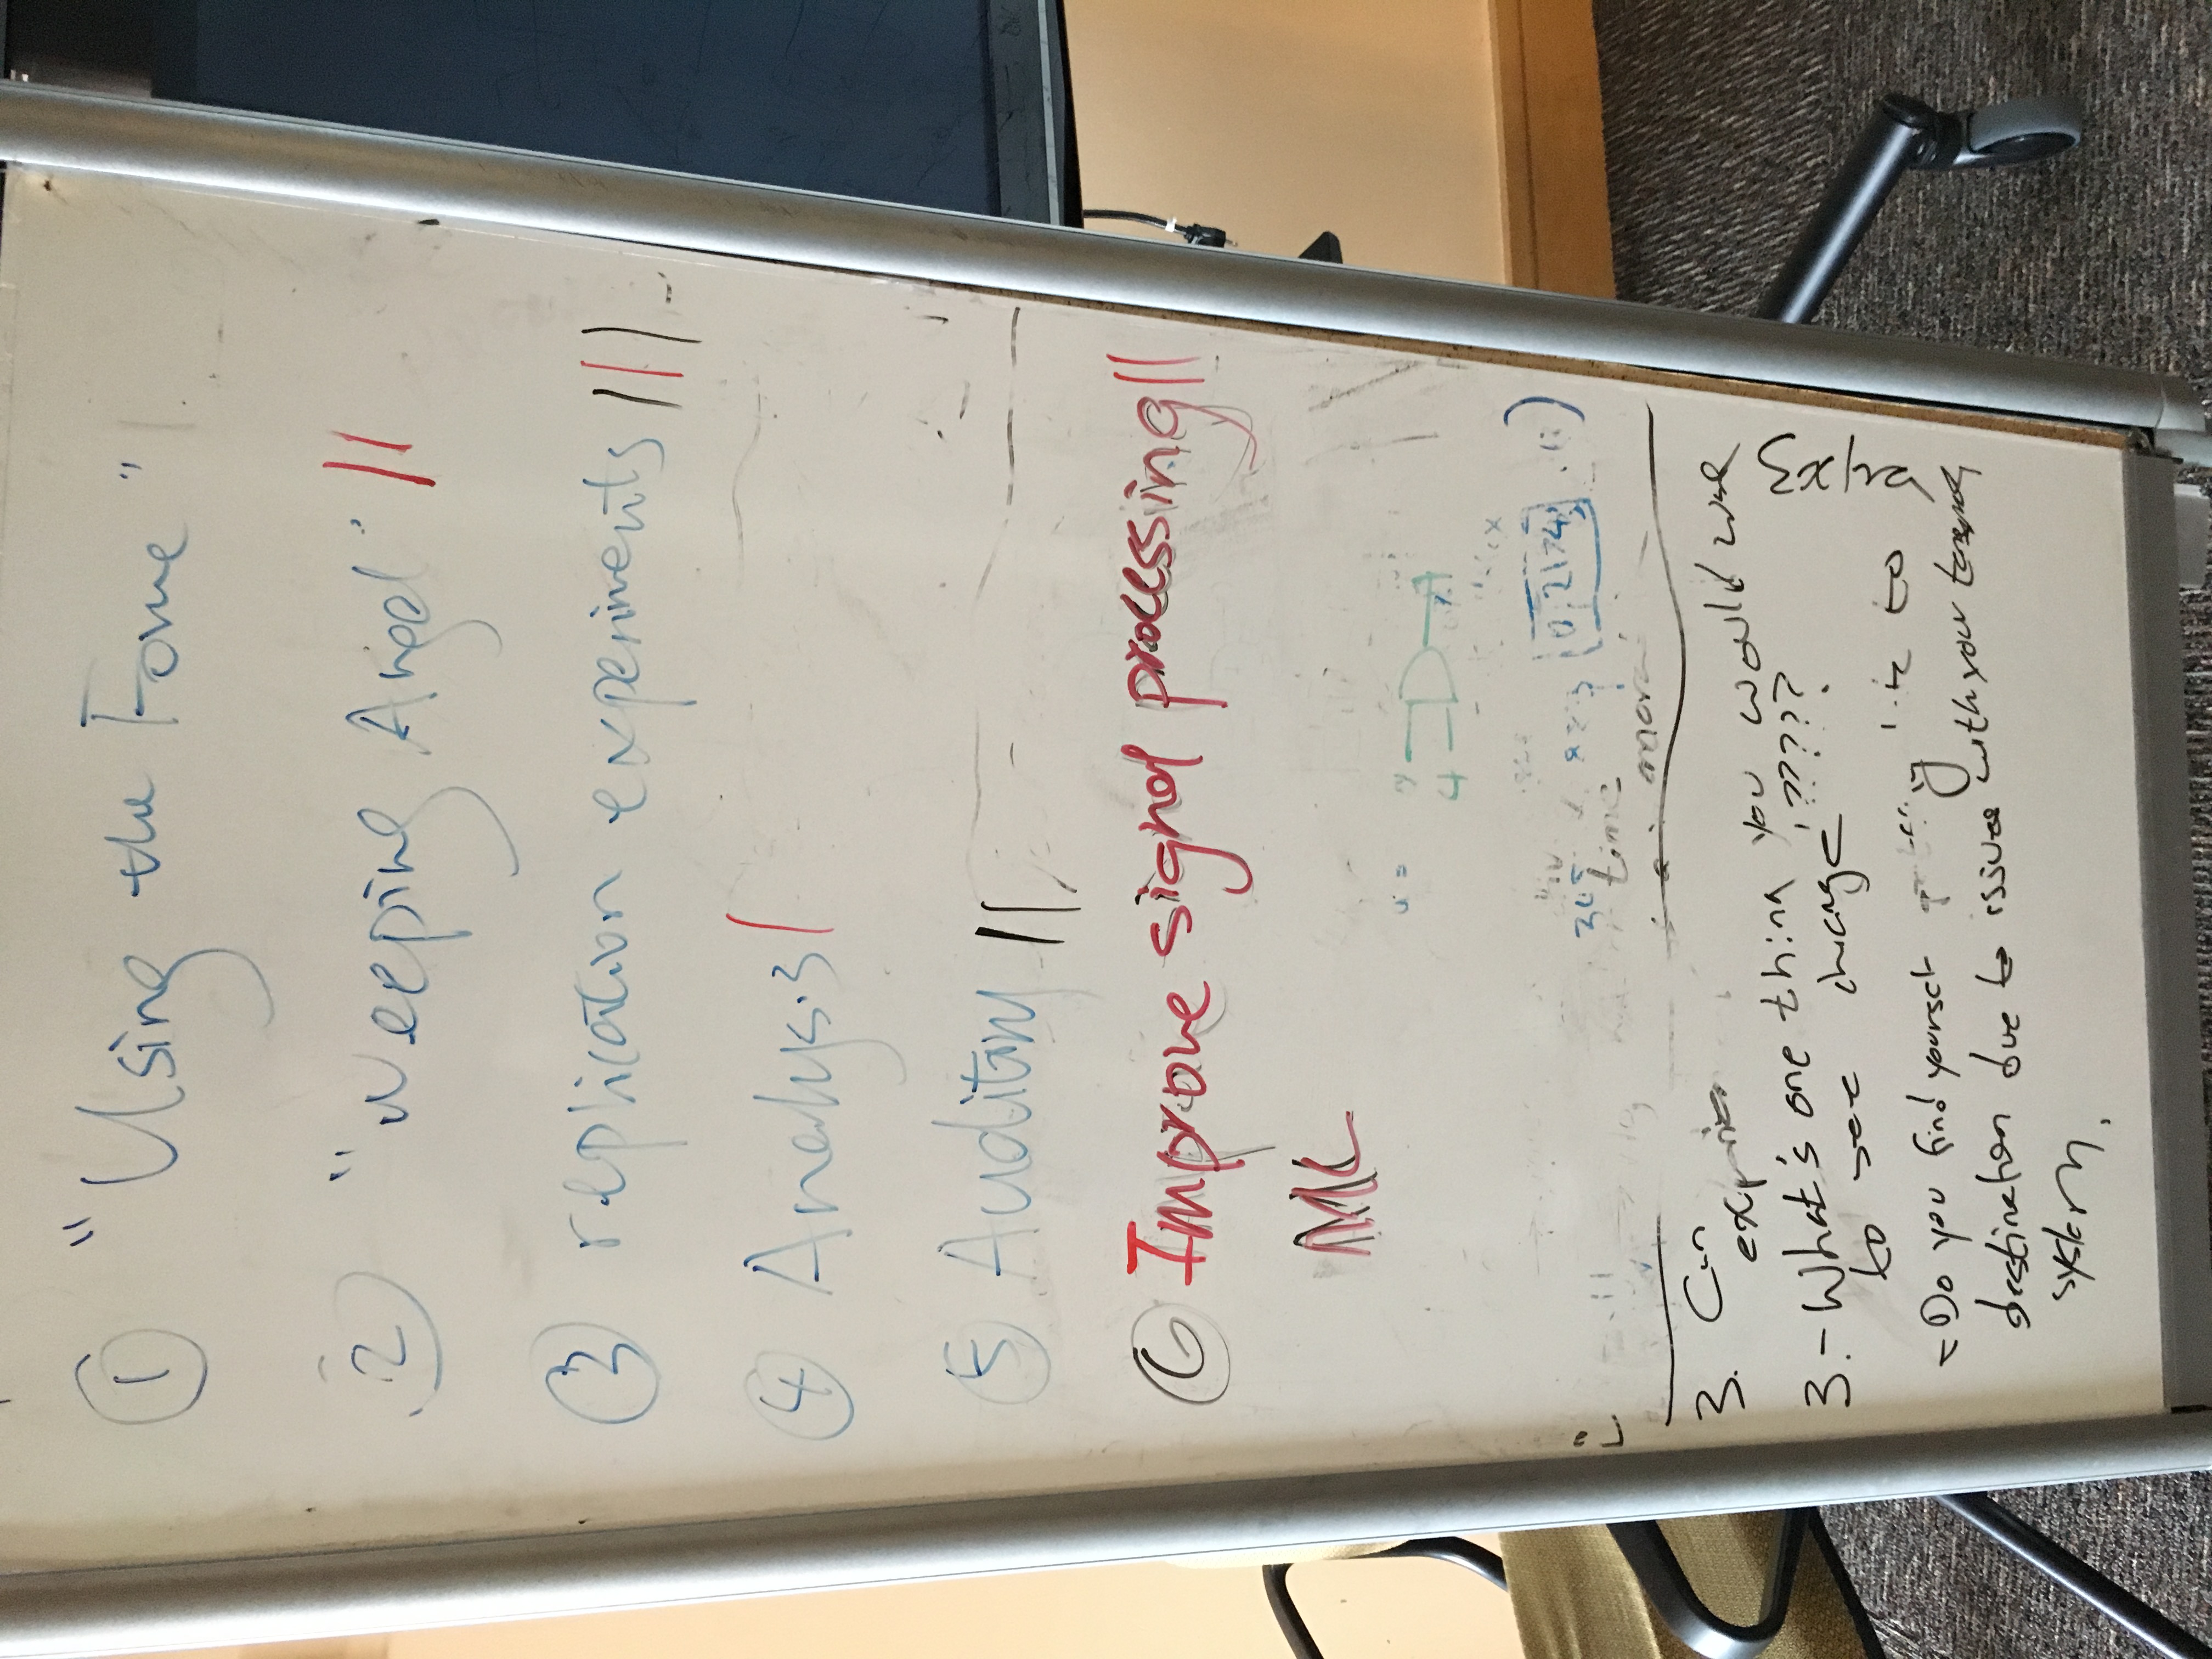 ① "Using the Force"
② "Weeping Angel" ||
③ replication experiments |||
④ Analysis |
⑤ Auditory ||
⑥ Improve signal processing ||
u =
4
0.2174
time
more
3. Can
3.- What's one thing you would
to see change?????
- Do you find yourself to
destination due to issues with your
system.